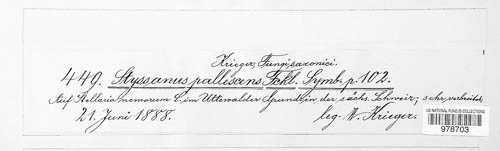 Krieger, Fungi saxonici.
449. Stysanus pallescens Fckl. Symb. p. 102.
Auf Stellaria nemorum L. im Uttewalder Grund in der sächs. Schweiz; sehr verbreitet,
21. Juni 1888. leg. W. Krieger.
US NATIONAL FUNGUS COLLECTIONS
978703